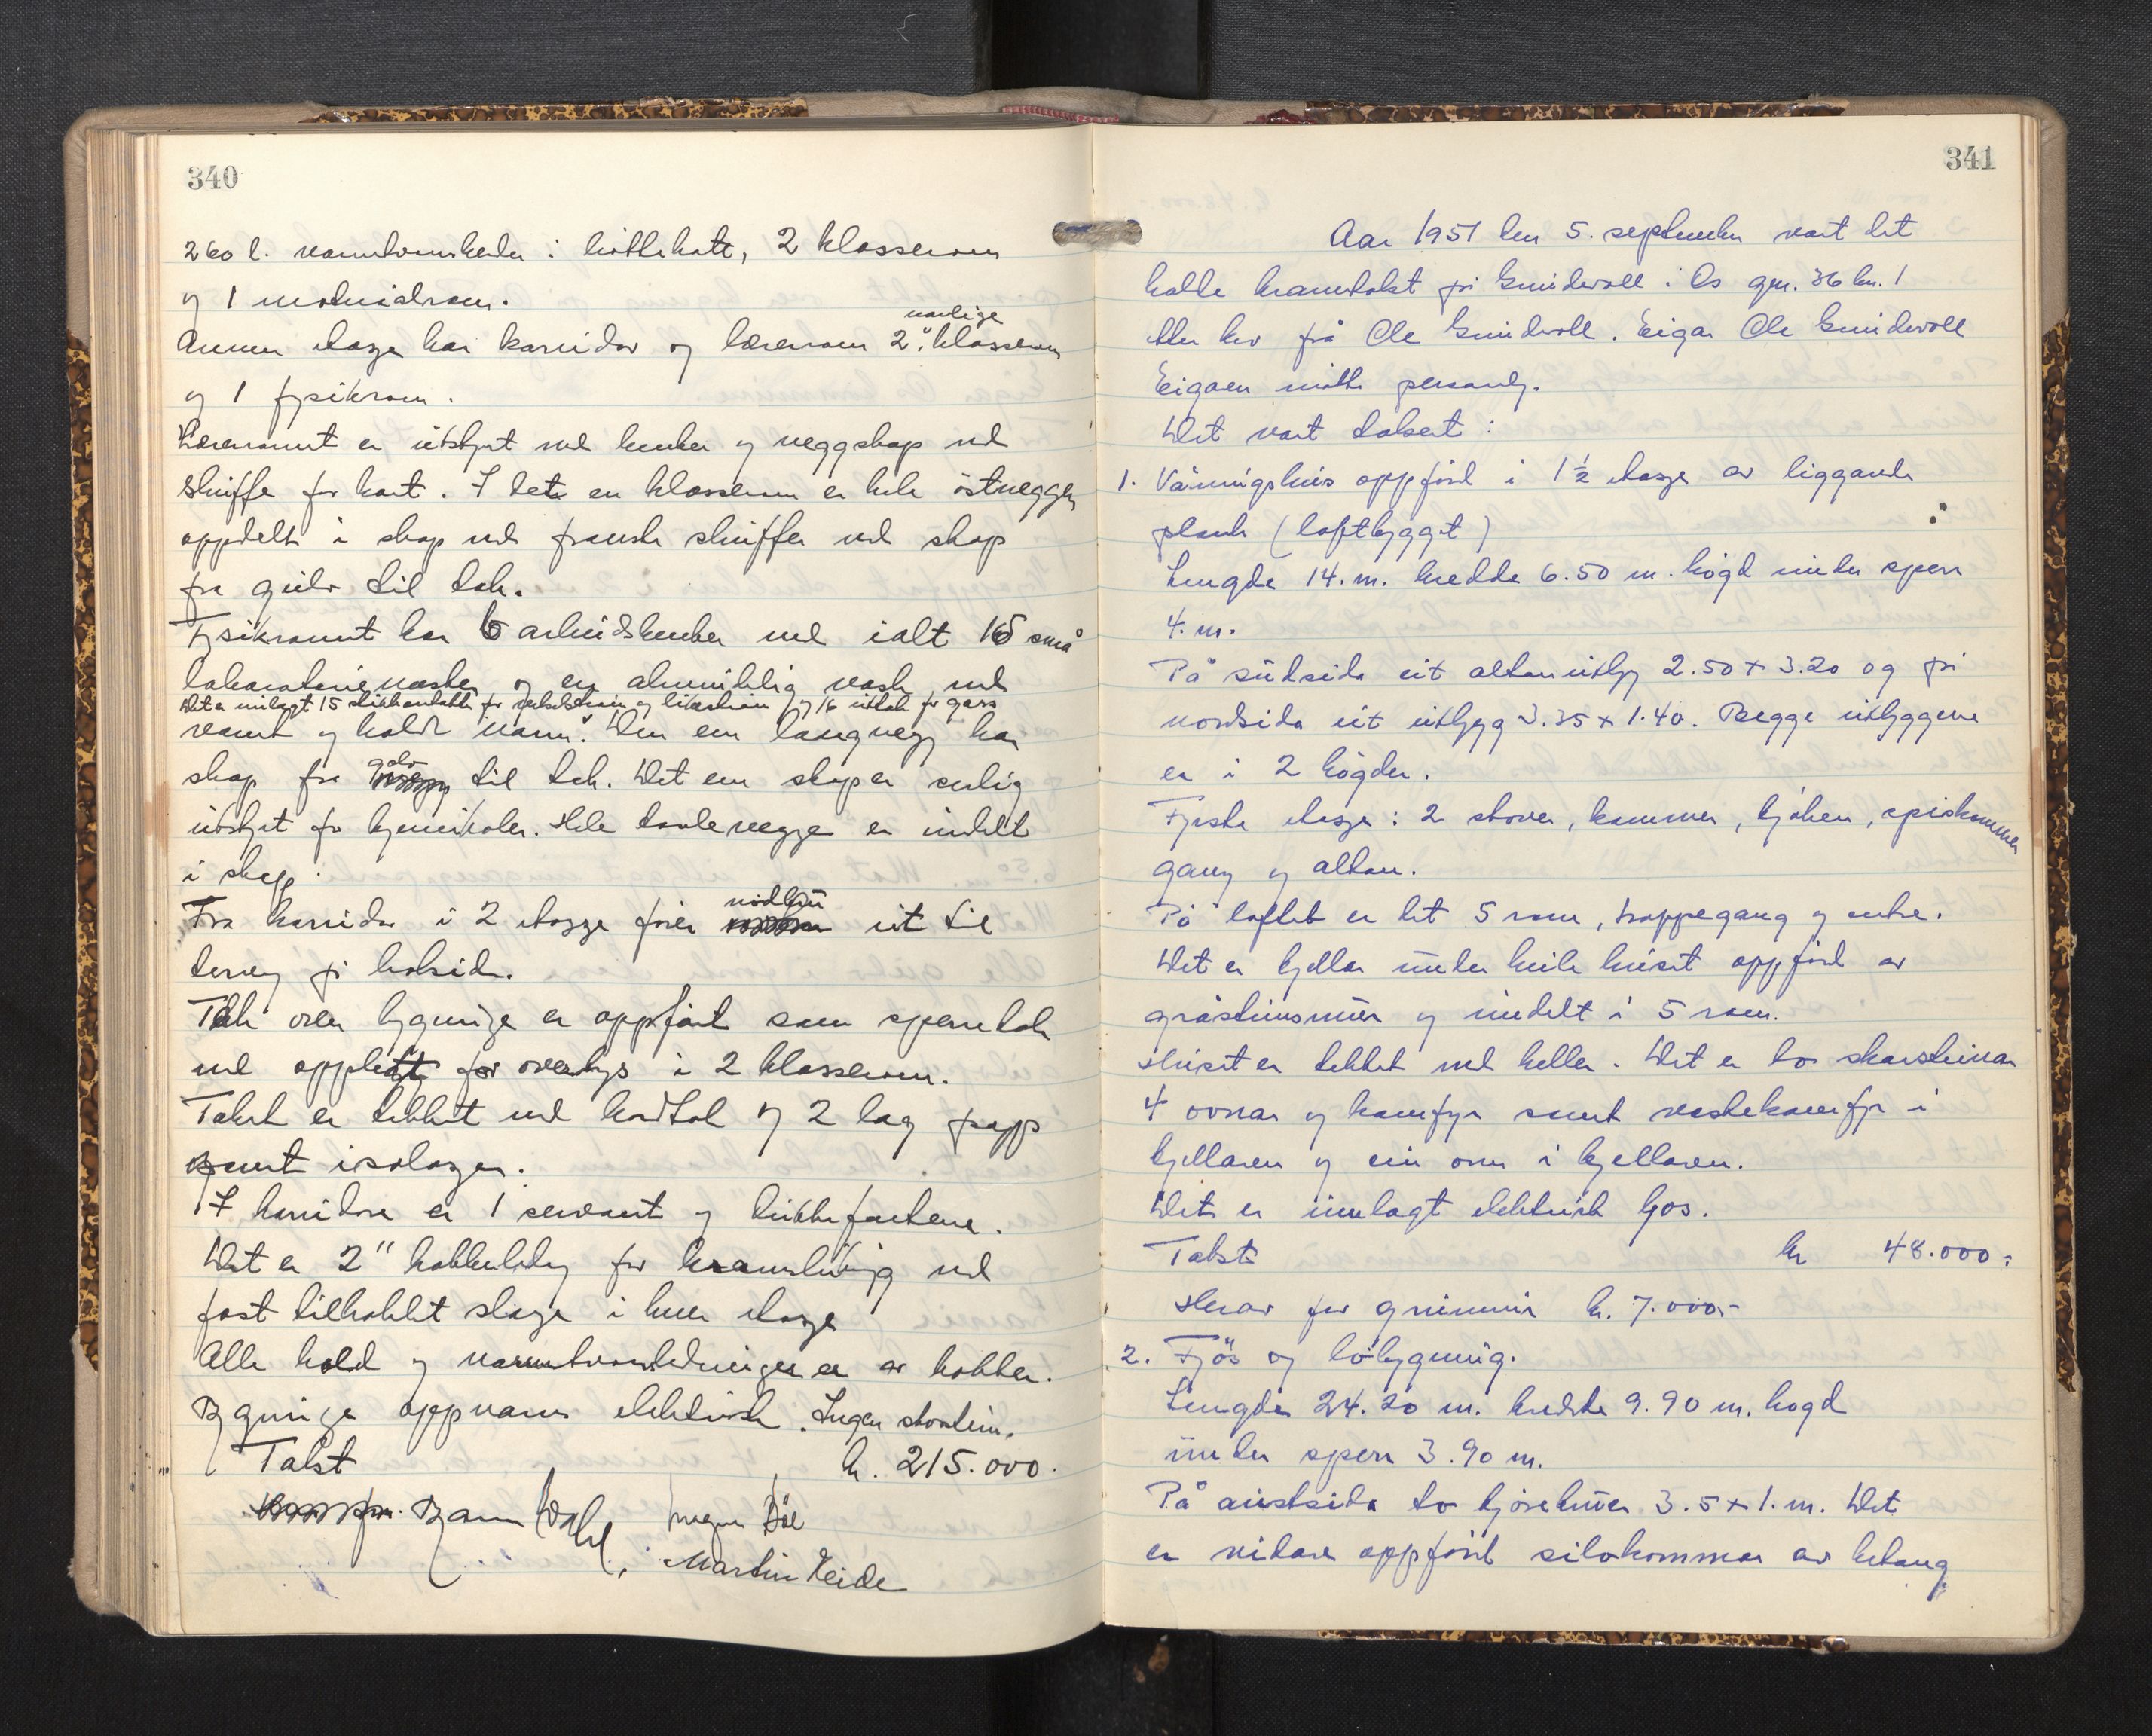 340
260 l. varmtvannsbereder i kottkott, 2 klasserom
og 1 materialrom.
Annen etasje har korridor og lærerrom 2 vanlige klasserom
og 1 fysikrom.
Lærerromet er utstyrt med benker og veggskap med
skuffe for kart. I det en klasserom er hele östveggen
oppdelt i skap med franske skuffer med skap
fra gulv til tak.
Fysikromet har 6 arbeidsbenker med ialt 16 små
laboratorievasker og en almindelig vask med
Det er innlagt 15 stikkontakter for og 16 uttak for gass
varmt og koldt vann. Den ene langvegg har
skap fra golv til tak. Det ene skap er serlig
utstyrt for kjemikaler. Hele tavleveggen er inndelt
i skap.
Fra korridor i 2 etasje förer nödtrin ut til
terreng på baksiden.
Tak over bygninga er oppfört som sperretak
med opplett for overlys i 2 klasserom.
Taket er tekket med bordtak og 2 lag papp
samt isolasjon.
I korridore er 1 servant og drikkefontene.
Det er 2" kobberledng for brannslukking med
fast tilkoblet slange i hver etasje
Alle kold og varmtvannsledninger er av kobber.
Bygninga oppvarm elektrisk. Ingen skorstein.
Takst kr. 215.000.
Martin Eide
341
Aar 1951 den 5. september vart det
halde branntakst på Grindevoll i Os gnr. 36 bnr. 1
etter krv frå Ole Grindevoll. Eigar Ole Grindevoll
Eigaren mötte personlg.
Det vart taksert:
1. Våningshus oppförd i 1½ etasje av liggande
plank (loftbygget)
Lengde 14. m. bredde 6.50 m. högd under sperr
4. m.
På südsida eit altanutbyg 2.50 x 3.20 og på
nordsida eit utbygg 3.35 x 1.40. Begge utbyggene
er i 2 högder.
Fyrste etasje: 2 stover, kammer, kjöken, spiskammer
gang og altan.
På loftet er det 5 rom, trappegang og entre.
Det er kjellar under heile huset oppförd av
gråsteinsmur og inndelt i 5 rom.
Huset er tekket med heller. Det er to skorsteinar
4 ovnar og komfyr samt vaskekomfyr i
kjellaren og ein ovn i kjellaren.
Det er innlagt elektrisk ljos.
Takst kr 48.000:
Herav for grunnmur kr. 7.000.-
2. Fjös og löbygning.
Lengde 24.20 m. bredde 9.90 m. hogd
under sperr 3.90 m.
På austsida to kjörebruer 3.5 x 1. m. Det
er vidare oppförd silokommar av betong